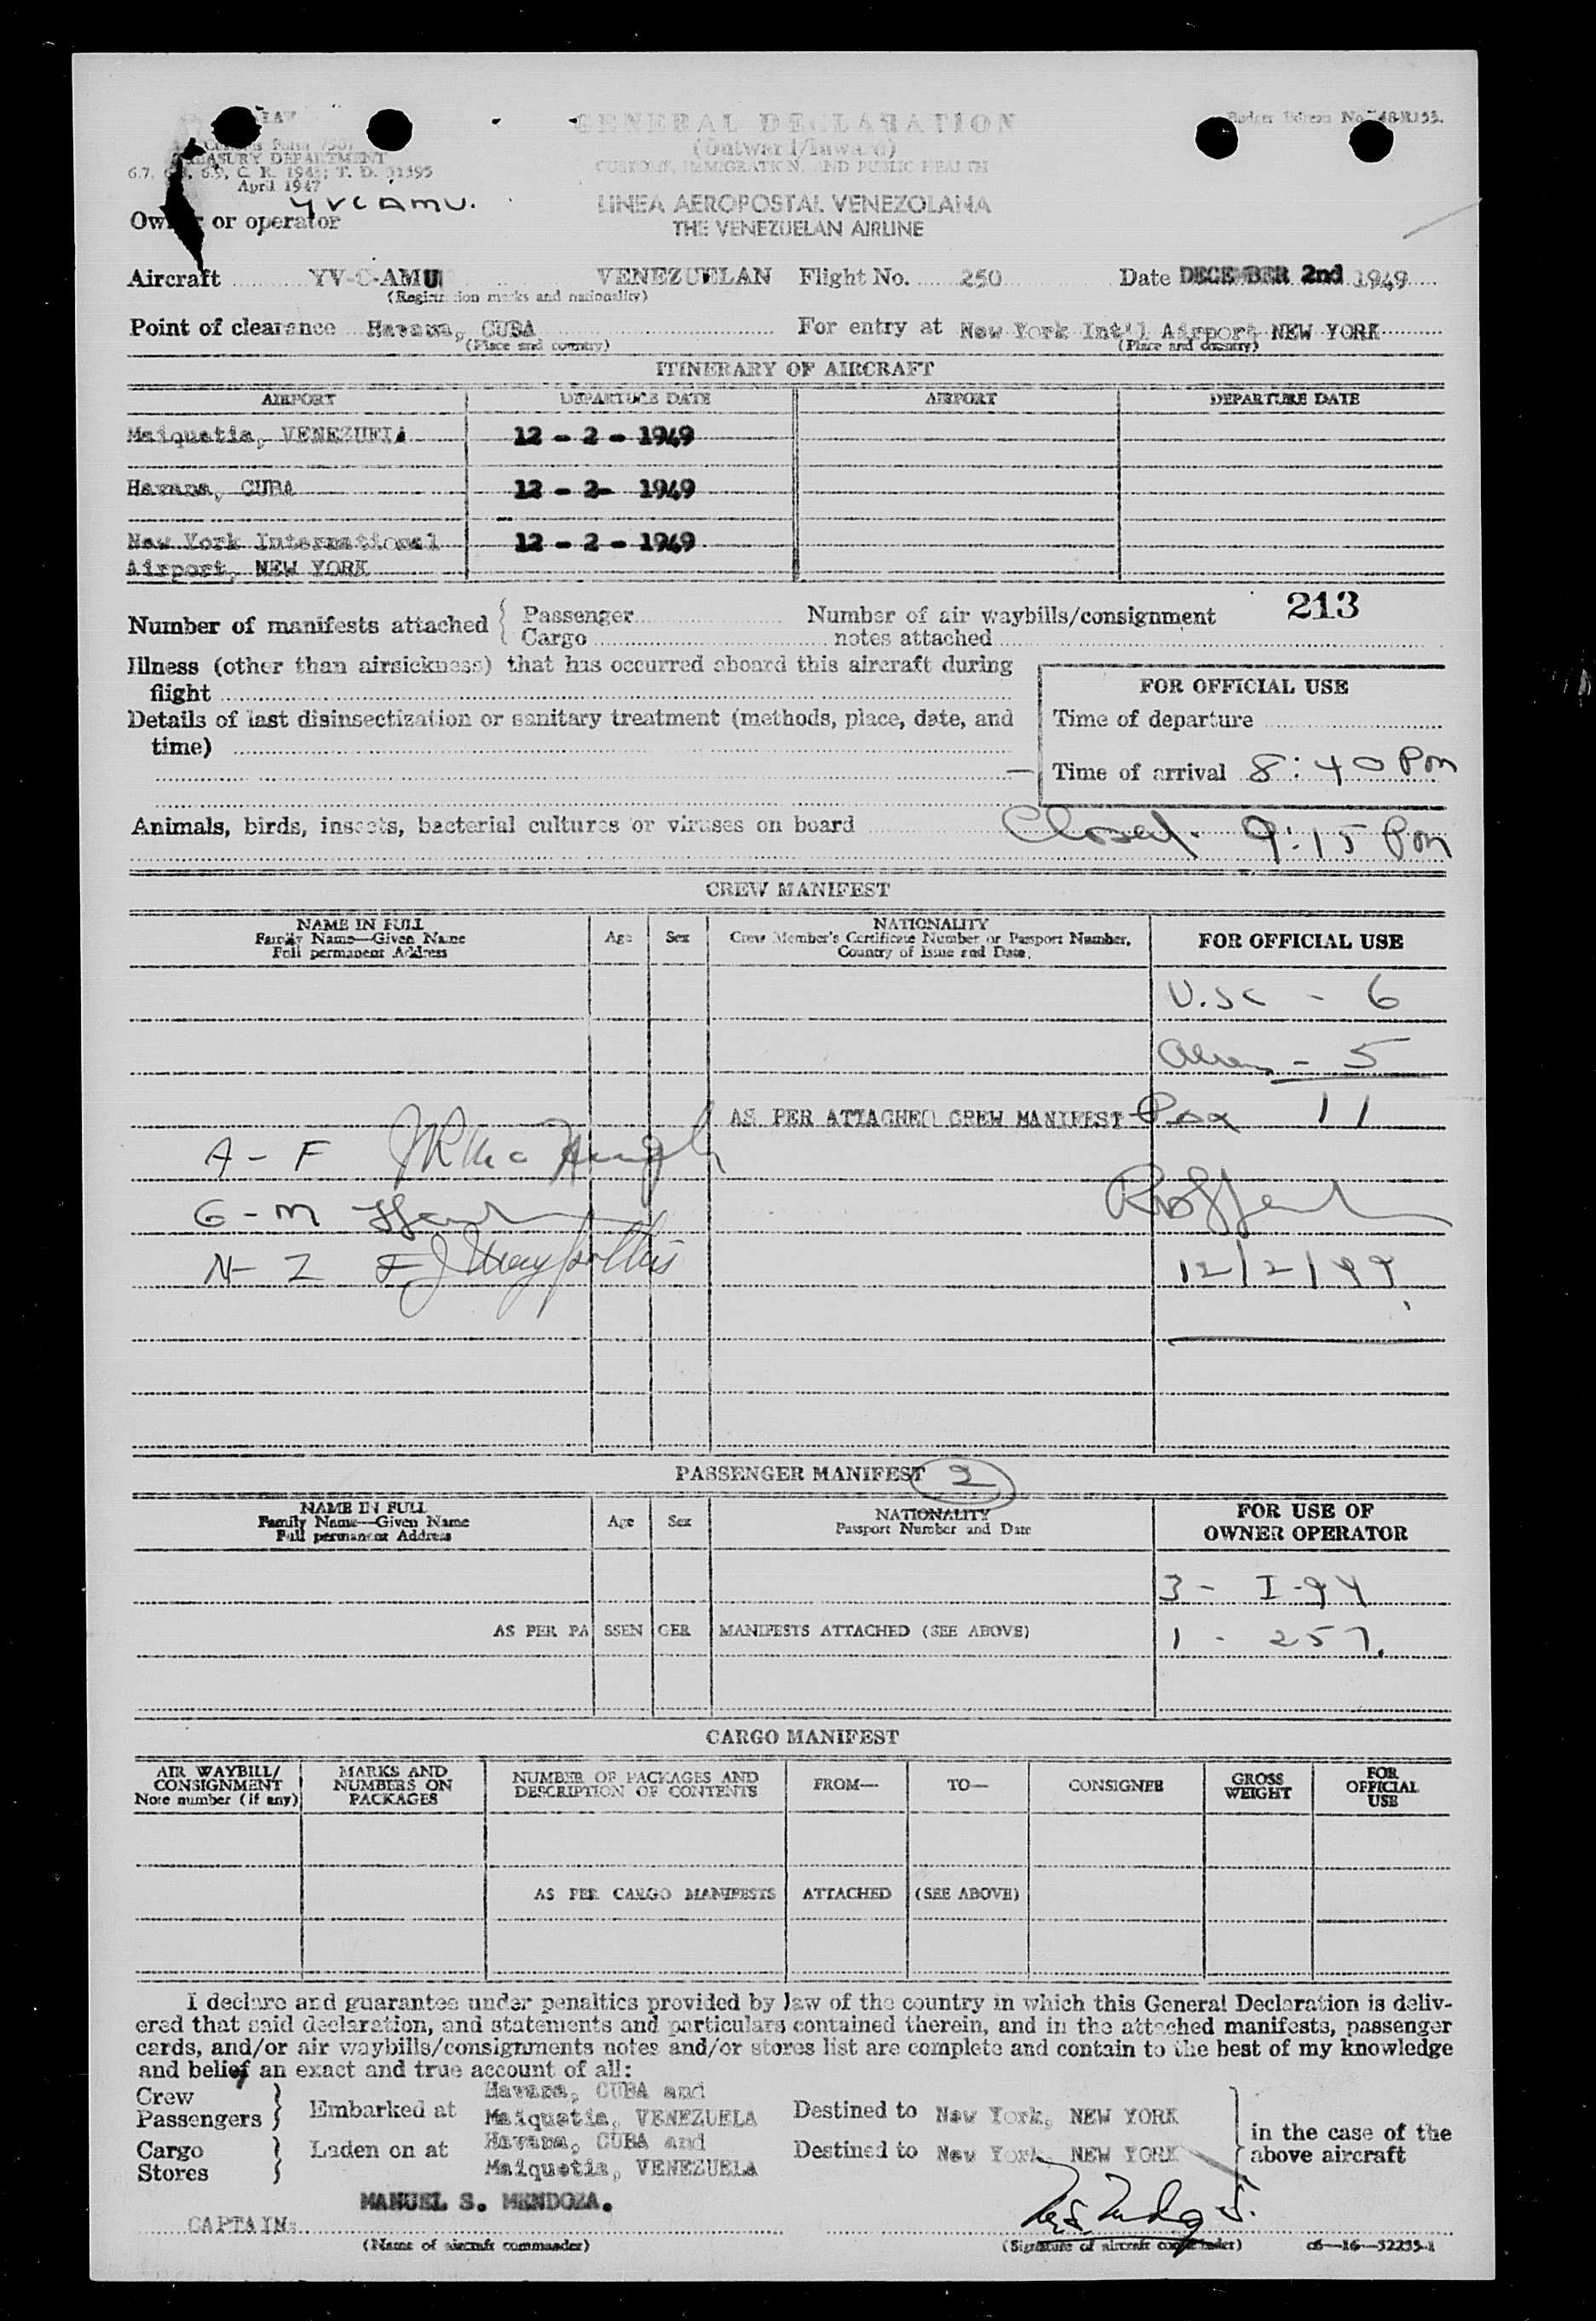 GENERAL DECLARATION
(Outward/Inward)
CUSTOMS, IMMIGRATION, AND PUBLIC HEALTH
Budget Bureau No. 48-R155.
Customs Form 7507
TREASURY DEPARTMENT
6.7, 6.8, 6.9, C. R. 1943; T. D. 51395
April 1947
LINEA AEROPOSTAL VENEZOLANA
THE VENEZUELAN AIRLINE
YVCAMU.
Owner or operator
Aircraft YV-C-AMU VENEZUELAN Flight No. 250 Date DECEMBER 2nd 1949
(Registration marks and nationality)
Point of clearance Havana, CUBA For entry at New York Int'l Airport NEW YORK
(Place and country) (Place and country)
ITINERARY OF AIRCRAFT
AIRPORT DEPARTURE DATE AIRPORT DEPARTURE DATE
Maiquetia, VENEZUELA 12 - 2 - 1949
Havana, CUBA 12 - 2- 1949
New York International 12 - 2 - 1949
Airport, NEW YORK
Number of manifests attached { Passenger Number of air waybills/consignment 213
Cargo notes attached
Illness (other than airsickness) that has occurred aboard this aircraft during
flight
FOR OFFICIAL USE
Details of last disinsectization or sanitary treatment (methods, place, date, and
time)
Time of departure
Time of arrival 8:40 Pm
Animals, birds, insects, bacterial cultures or viruses on board Closed. 9:15 Pm
CREW MANIFEST
NAME IN FULL
Family Name—Given Name
Full permanent Address
Age Sex
NATIONALITY
Crew Member's Certificate Number or Passport Number,
Country of Issue and Date.
FOR OFFICIAL USE
U.SC - 6
Alien - 5
AS PER ATTACHED CREW MANIFEST Pax 11
A - F
G - M
N - Z
12/2/49
PASSENGER MANIFEST 2
NAME IN FULL
Family Name—Given Name
Full permanent Address
Age Sex
NATIONALITY
Passport Number and Date
FOR USE OF
OWNER OPERATOR
3 - I-94
AS PER PASSENGER MANIFESTS ATTACHED (SEE ABOVE) 1 - 257.
CARGO MANIFEST
AIR WAYBILL/
CONSIGNMENT
Note number (if any)
MARKS AND
NUMBERS ON
PACKAGES
NUMBER OF PACKAGES AND
DESCRIPTION OF CONTENTS
FROM— TO— CONSIGNEE
GROSS
WEIGHT
FOR
OFFICIAL
USE
AS PER CARGO MANIFESTS ATTACHED (SEE ABOVE)
I declare and guarantee under penalties provided by law of the country in which this General Declaration is deliv-
ered that said declaration, and statements and particulars contained therein, and in the attached manifests, passenger
cards, and/or air waybills/consignments notes and/or stores list are complete and contain to the best of my knowledge
and belief an exact and true account of all:
Crew
Passengers } Embarked at Havana, CUBA and
Maiquetia, VENEZUELA Destined to New York, NEW YORK
Cargo
Stores } Laden on at Havana, CUBA and
Maiquetia, VENEZUELA Destined to New York, NEW YORK
in the case of the
above aircraft
MANUEL S. MENDOZA.
CAPTAIN:
(Name of aircraft commander) (Signature of aircraft commander) c6—16—52235-1